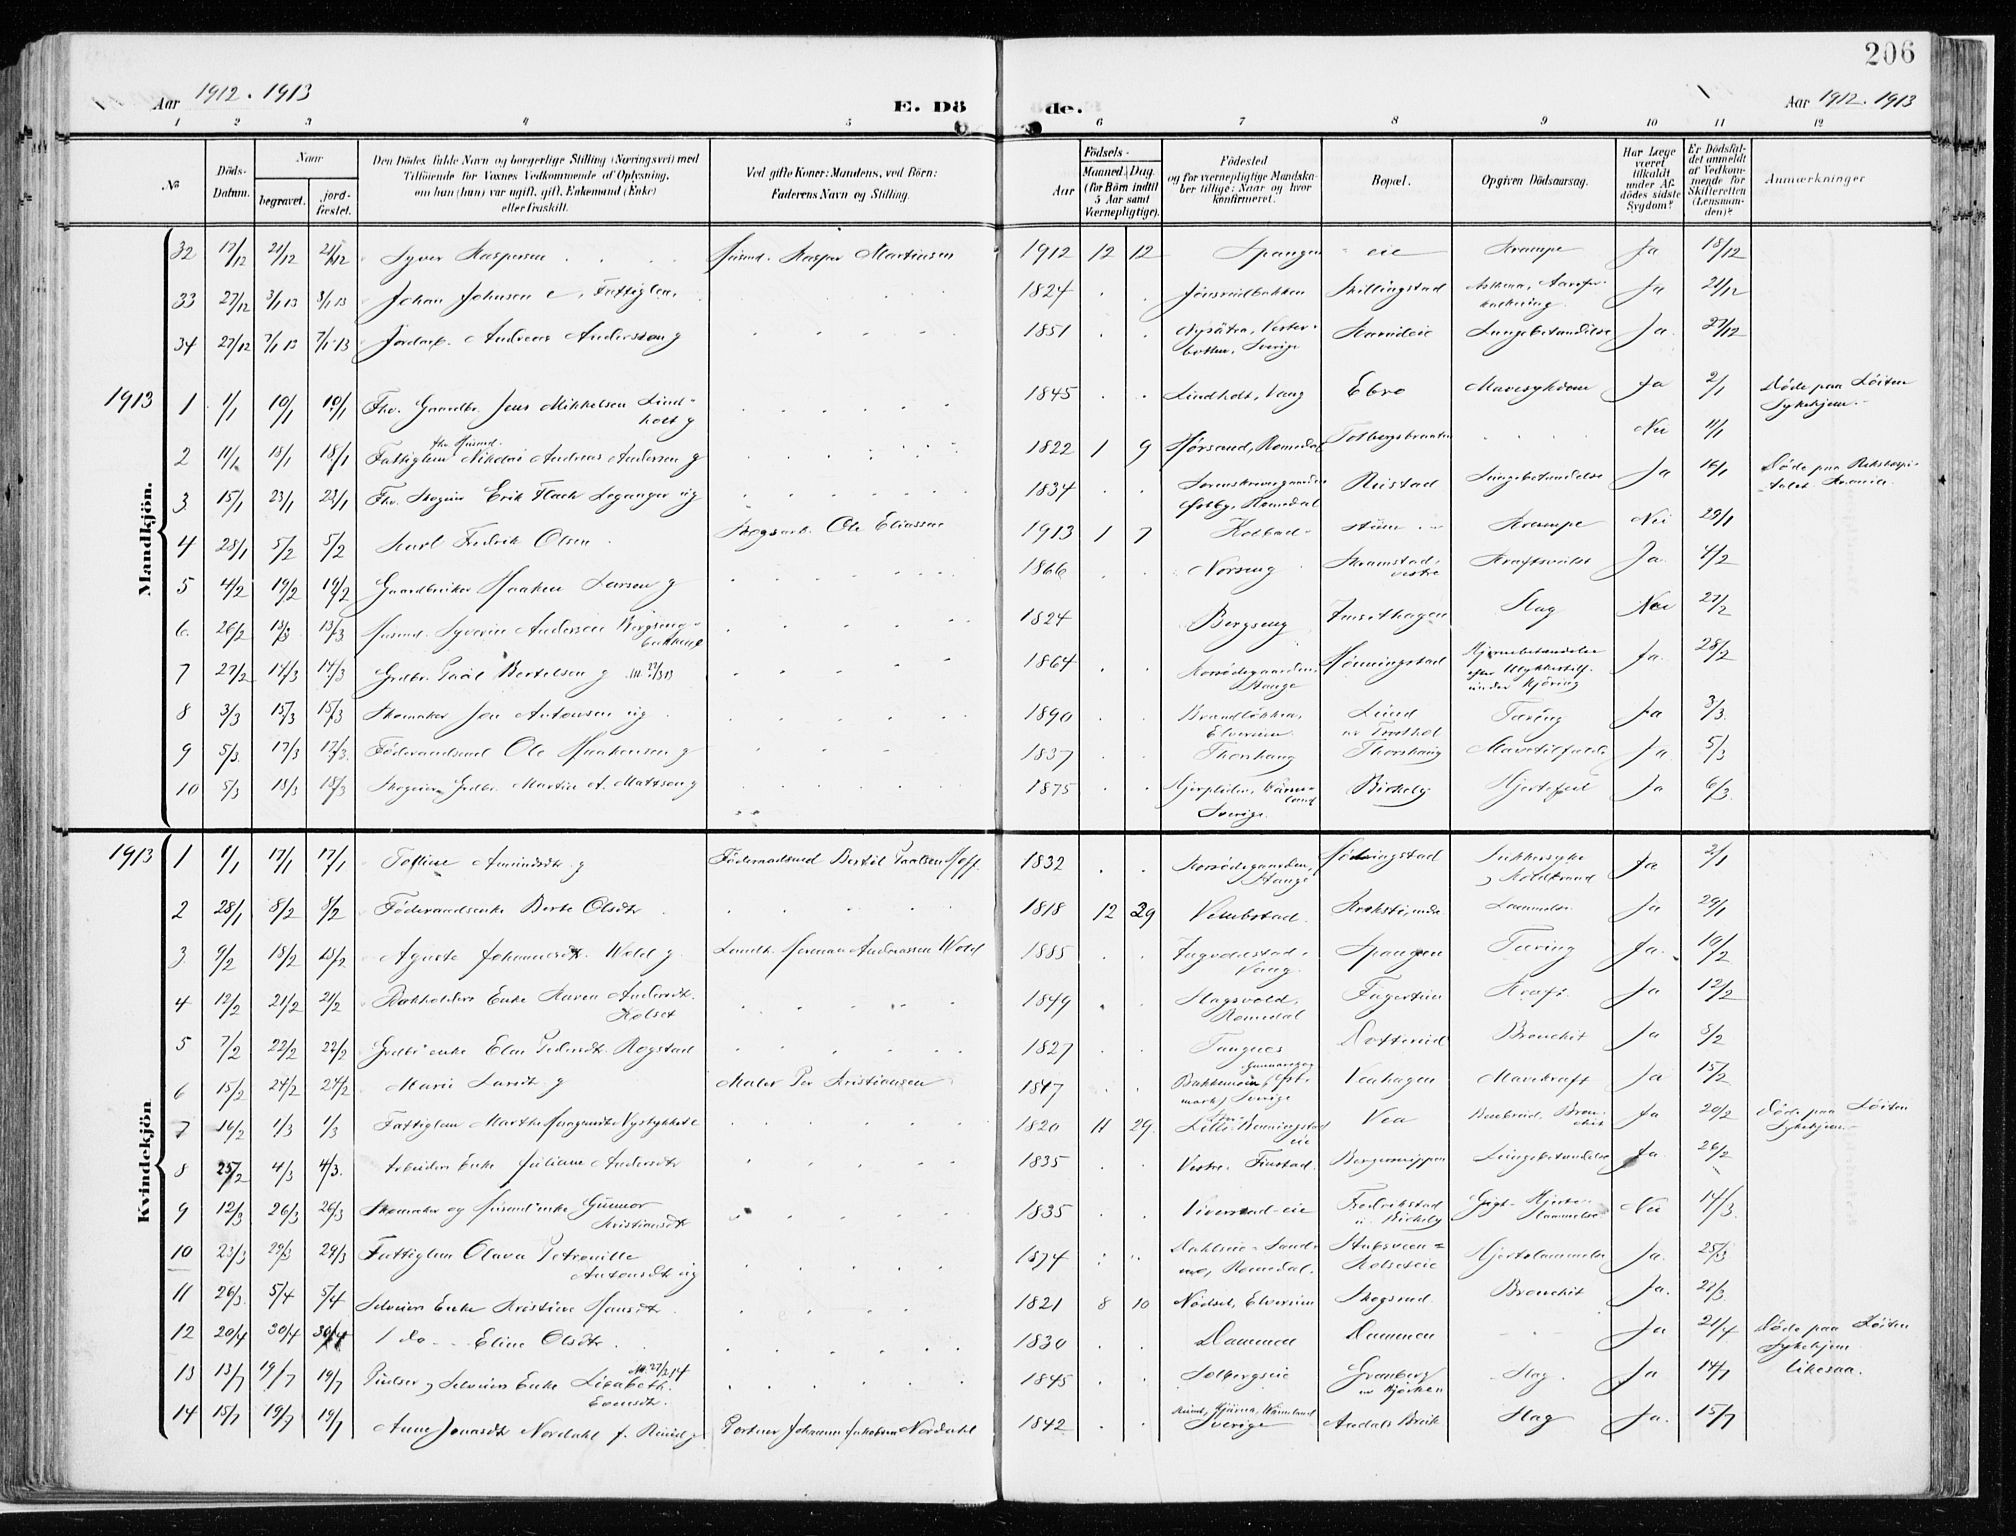 206
Aar 1912 . 1913
E. Dö
de.
Aar 1912. 1913
1 2 3 4 5 6 7 8 9 10 11 12
No
Döds-Datum.
Naar
begravet.
jord-fæstet.
Den Dödes fulde Navn og borgerlige Stilling (Næringsvei) med
Tilföiende for Voxnes Vedkommende af Oplysning,
om han (hun) var ugift, gift, Enkemand (Enke)
eller fraskilt.
Ved gifte Koner: Mandens, ved Börn:
Faderens Navn og Stilling.
Födsels-
Aar
Maaned Dag
(for Börn indtil
5 Aar samt
Værnepligtige).
Födested
og for værnepligtige Mandska-
ber tillige: Naar og hvor
konfirmeret.
Bopæl.
Opgiven Dödsaarsag.
Har Læge
været
tilkaldt
under Af-
dödes sidste
Sygdom?
Er Dödsfal-
det anmeldt
af Vedkom-
mende for
Skifteretten
(Lensman-
den)?
Anmærkninger
Mandkjön.
32 17/12 21/12 21/12 Syver Kaspersen Husmd. Kasper Martinsen 1912 12 12 Spangen - eie Krampe Ja 18/12
33 27/12 3/1 13 3/1 13 Johan Johnsen e, Fattiglem, 1824 Skillingstad Ja 21/12
34 27/12 7/1 13 7/1 13 Jordarb. Andreas Andersson g 1851 Nysätra, Vester-
botten, Sverige Lungebetændelse Ja. 27/12
1913
1 1/1 10/1 10/1 Fhv. Gaardbr. Jens Mikkelsen Lind-
holt g 1845 Lindholt, Vang Ebro Mavesykdom Ja 2/1 Döde paa Löiten
Sykehjem.
2 11/1 18/1 18/1 Fattiglem fhv. Husmd. Nikolai Andreas Andersen g 1822 1 9 Hörsand, Romedal Nei 11/1
3 15/1 23/1 23/1 Fhv. Skogeier Erik Flach Leganger ug 1834 Sorenskrivergaarden
Romedal Rustad Lungebetændelse Ja 16/1 Döde paa Rikshospi-
talet Kr.ania.
4 28/1 5/2 5/2 Karl Fredrik Olsen Bogsarb. Ole Eliassen 1913 1 7 Kolbad- Krampe Nei 29/1
5 4/2 19/2 19/2 Gaardbruker Haaken Larsen g 1866 Norseng Skramstad,
vestre Kraftsvulst Ja 4/2
6. 26/2 13/3 13/3 Husmd. Syverin Andersen Bergseng-
bakken e 1824 Bergseng Imerthagen Slag Nei 27/2
7 27/2 14/3 14/3 Grdbr. Paal Bertelsen g 1864 Korsödegaarden,
Stange Hönningstad Hjernebetændelse
efter Ulykkestilf.
under Kjöring Ja. 28/2
8 3/3 15/3 15/3 Skomaker Jon Antonsen ug 1890 Brandlökken,
Elverum Lund
Tæring Ja 3/3.
9 5/3. 17/3 17/3 Föderaadsmd Ole Haakensen g 1837 Thorshaug Thorshaug Mavetilfælde Ja. 5/3
10 5/3 18/3 18/3 Skogeier, Grdbr. Martin A. Mattson g 1875 Värm-
land
Sverige. Birkely Hjertefeil Ja 6/3.
Kvindekjön
1913
1 1/1 17/1 17/1 Amundsdtr. g Föderaadsmd Bertil Paalsen Hoff. 1832 Korsödegaarden,
Stange Hönningstad Sukkersyke
g Koldbrand Ja 2/1
2 28/1 8/2 8/2 Föderaadsenke Berte Olsdtr 1818 12 29 Vembstad. Ja 29/1
3 9/2 18/2 18/2 Aguste Johannesdtr. Wold g Landh. Herman Andreassen Wold 1885
Vang. Spangen Tæring Ja. 10/2
4 12/2 21/2 21/2 Enke Karen Andersdtr.
Kolset 1849 Slagsvold,
Romedal Kræft. Ja 12/2
5 7/2 22/2 22/2 Grdbr enke Eline Pedersdtr. Rogstad 1827 Tangnes Dotterud Bronchit Ja 8/2
6 15/2 24/2 24/2 Marie Larsdtr g Maler Per Kristiansen 1847 Gunnarskog
Sverige Veahagen Mavekræft Ja 15/2
7 16/2 1/3 1/3 Fattiglem Marthe Haagensdtr Nystykket e 1820 11 29. Lille-Hönningstad
eie Vea Benbrud, Bron-
chit Ja 20/2 Döde paa Löiten
Sykehjem.
8 25/2 4/3 4/3. Arbeiders Enke Juliane Andersdtr 1835 Vestre Finstad. Lungebetændelse Ja. 26/2
9 12/3 26/3 26/3 Skomaker og Husmd'enke Gunnor
Kristiansdtr 1835 Fredrikstad
u. Birkely Gigt - Hjerte-
lammelse Nei 14/3.
10 23/3 29/3 29/3 Fattiglem Olava Petronille
Antonsdtr ug 1874 Dahlseie - Sand-
mo, Romedal. Stubsveen =
Kolseteie Hjertelammelse Ja. 25/3
11 26/3. 5/4 5/4 Selveiers Enke Kristine Hansdtr 1821 8 10 Nödset, Elverum Skogsrud. Bronchit Ja. 22/3
12 20/4 30/4 30/4 do Eline Olsdtr. 1830 Dammen Dammen Ja 21/4 Döde paa Löiten
Sykehjem.
13 13/7 19/7 19/7 Selveiers Enke Lisabeth
Evensdtr. 1845 Solbergseie Granberg
Slag. Ja 14/7 likesaa.
14 15/7 19/7 19/7 Anne Jonasdtr Nordahl f. Rund g Portner Johannes Jakobsen Nordahl 1842 Värmland
Sverige Aadals Bruk Slag Ja. 15/7